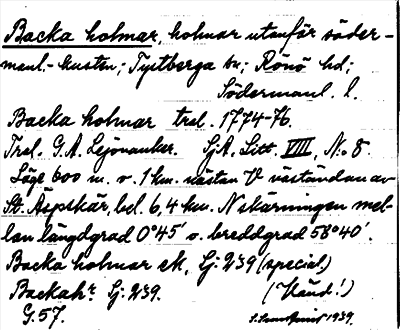 Backa holmar, holmar utanför söder-
manl.- kusten; Tystberga sn; Rönö hd;
Södermanl. l.
Backa holmar trol. 1774-76.
Trol. G.A. Lejonanker. SjA. Litt. VIII, No 8.
Läge 600 m. o. 1 km. nästan V väständan av
St. Äspskär, bel. 6,4 km. N skärningen mel-
lan längdgrad 0°45' o. breddgrad 58°40'.
Backa holmar ek. Sj: 239 (special)
Backahr. Sj: 239. (Känd!)
G.57. 1939.